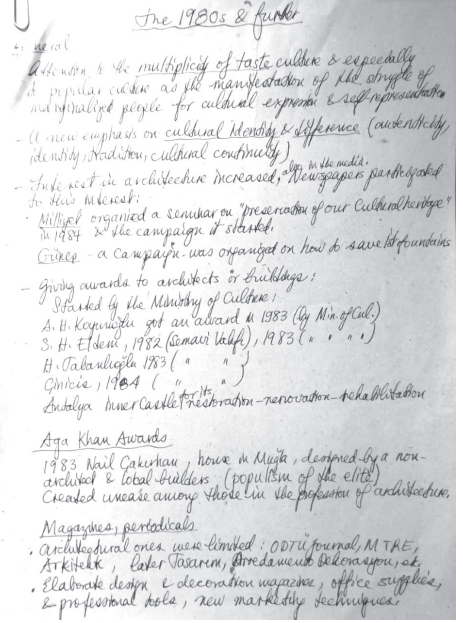 the 1980s & further
General
Attention to the multiplicity of taste culture & especially
to popular culture as the manifestation of the struggle of
marginalized people for cultural expression & self-representation
- A new emphasis on cultural identity & difference (autenticity,
identity, tradition, cultural continuity)
- Interest in architecture increased, also in the media. Newspapers participated
to this interest:
Milliyet organized a seminar on "preservation of our Cultural heritage"
in 1984 & the campaign it started.
- a Campaign was organized on how to save Ist fountains
- Giving awards to architects or buildings:
Started by the Ministry of Culture:
A. H. Koyunoğlu got an award in 1983 (by Min. of Cul.)
S. H. Eldem, 1982 (Semavi), 1983 ( " " " " )
H. Tabanlıoğlu 1983 ( " " )
Cinicis, 1984 ( " " )
Antalya inner Castle for its restoration - renovation - rehabilitation
Aga Khan Awards
1983 Nail Çakırhan, house in Muğla, designed by a non-
architect & local builders (populism of the elite)
Created unease among those in the profession of architecture.
Magazines, periodicals
• architectural ones were limited: ODTÜ journal, MTRE,
Arkitekt, later Tasarım, Arredamento Dekorasyon, etc.
• Elaborate design & decoration magazines, office supplies,
& professional tools, new marketing techniques.